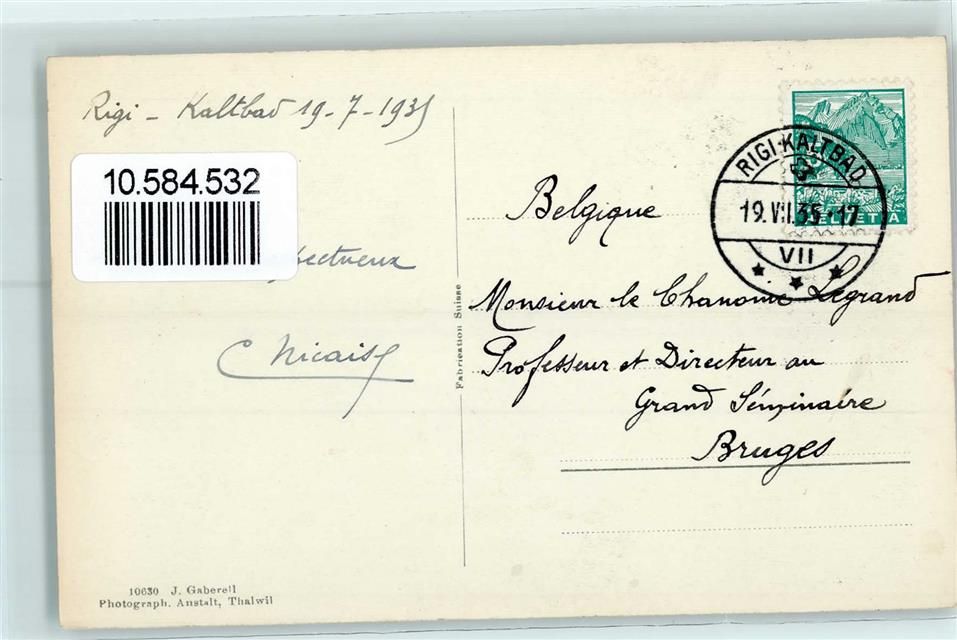 Rigi - Kaltbad 19-7-1935
10.584.532
C Nicaise
10630 J. Gaberell
Photograph. Anstalt, Thalwil
Fabrication Suisse
HELVETIA
RIGI-KALTBAD
19.VII.35-17
VII
Belgique
Monsieur le Chanoine Legrand
Professeur et Directeur au
Grand Séminaire
Bruges